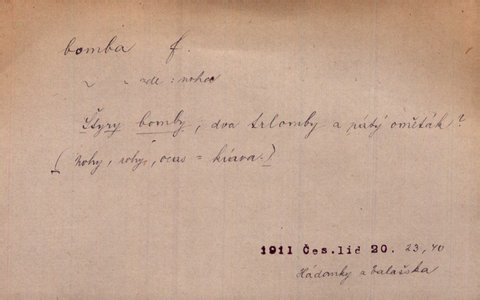 bomba f.
„ „ zde: noha
Štyry bomby, dva trlomby a pátý ometák?
(Nohy, rohy, ocas = kráva.)
1911 Čes. lid 20. 23, 40
Hádanky z Valašska